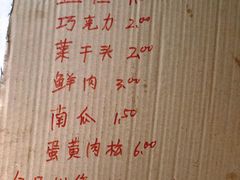 巧克力 2.00
菜干头 2.00
鲜肉 3.00
南瓜 1.50
蛋黄肉松 6.00